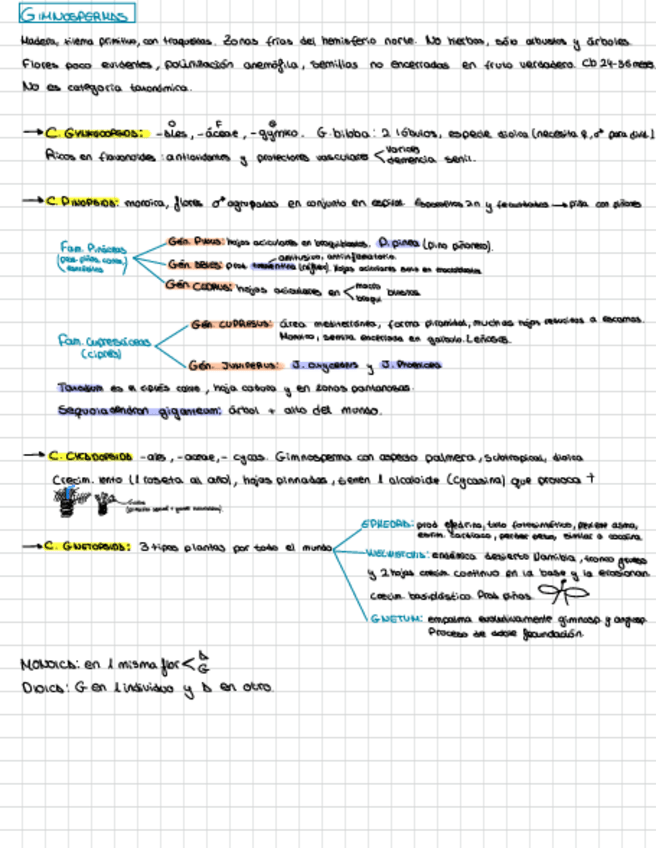 GIMNOSPERMAS
Madera, xilema primitivo, con traqueidas. Zonas frías del hemisferio norte. No hierbas, sólo arbustos y árboles.
Flores poco evidentes, polinización anemófila, semillas no encerradas en fruto verdadero. Cb 24-36 meses.
No es categoría taxonómica.
O F G
→ C. GYNKGOOPSIDS: -ales, -aceae, -gymko. G. biloba: 2 lóbulos, especie dioica (necesita ♀, ♂ para divid.)
Ricos en flavonoides: antioxidantes y protectores vasculares < varices
demencia senil.
→ C. PINOPSIDS: monoica, flores ♂ agrupadas en conjunto en espiral. 2n y → piña con piñones
Fam. Pináceas
Gén. PINUS: hojas aciculares en braquiblastos. P. pinea (pino piñonero).
antitusivo, antiinflamatorio.
Gén. ABIES: prod. trementina hojas aciculares solo en macroblastos
Gén. CEDRUS: hojas aciculares en < macro
braqui blastos
Fam. Cupresáceas
(ciprés)
Gén. CUPRESUS: área mediterránea, forma piramidal, muchas hojas reducidas a escamas.
Monoico, semilla encerrada en gálbulo. Leñosos.
Gén. JUNIPERUS: J. oxycedrus y J. Phoenicea
Taxodium es el ciprés calvo, hoja caduca y en zonas pantanosas.
Sequoiadendron giganteum: árbol + alto del mundo.
→ C. CICADOPSIDS -ales, -aceae, - cycas. Gimnosperma con aspecto palmera, subtropical, dioica
Crecim. lento (1 roseta al año), hojas pinnadas, tienen 1 alcaloide (cycasina) que provoca †
→ C. GNETOPSIDS: 3 tipos plantas por todo el mundo
EPHEDRA: prod. efedrina, tallo fotosintético, previene asma,
estim. cardiaco, perder peso, similar a cocaína.
WELWITSCHIA: endémica desierto Namibia, tronco grueso
y 2 hojas crecim. continuo en la base y la erosionan.
crecim. basiplástico. Prod. piñas.
GNETUM: empalma evolutivamente gimnosp. y angiosp.
Proceso de doble fecundación.
MONOICA: en 1 misma flor < A
G
DIOICA: G en 1 individuo y A en otro.